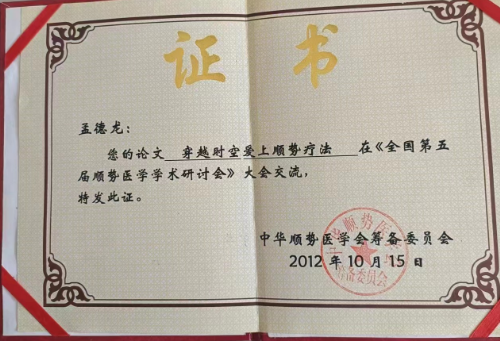 证书
孟德龙：
您的论文 穿越时空爱上顺势疗法 在《全国第五
届顺势医学学术研讨会》大会交流，
特发此证。
中华顺势医学会筹备委员会
2012 年 10 月 15 日
中华顺势医学会
筹备委员会